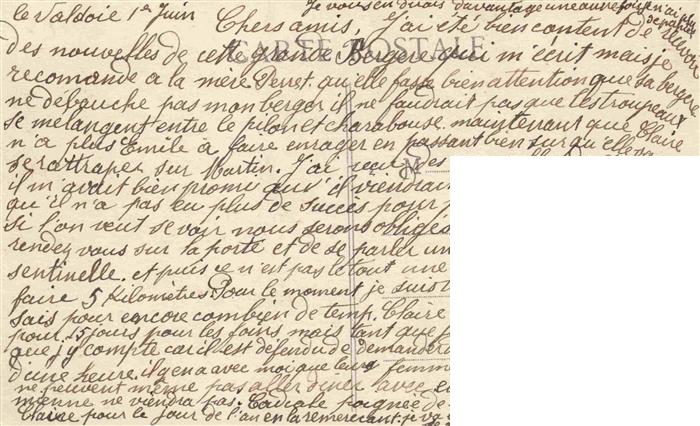 Je vous en dirais davantage une autre fois je n'ai plus
de papier
le Valdoie 1er Juin Chers amis, J'ai été bien content de recevoir
CARTE POSTALE
des nouvelles de cette grande Berger qui m'écrit mais je
recomande a la mère Perret qu'elle fasse bien attention que sa bergere
ne débauche pas mon berger il ne faudrait pas que les troupeaux
se mélangent entre le pilon et charabouse. maintenant que Claire
n'a plus Emile à faire enrager en passant bien sur qu'elle va
se rattraper sur Martin. J'ai recu des
M
il m'avait bien promu qu'il viendrai
qu'il n'a pas eu plus de succès pour
si l'on veut se voir nous serons obligés
rendez vous sur la porte et de se parler un
sentinelle. et puis ce n'est pas le tout une
faire 5 Kilomètres. Pour le moment je suis
sais pour encore combien de temp. Claire
pour 15 jours pour les foins mais tant que
que j'y compte car il est défendu de demander
d'une heure. il y en a avec moi que leur femme
ne peuvent même pas aller diner avec
mienne ne viendra pas. Cordiale poignée de
Claire pour le jour de l'an en la remerciant. je va